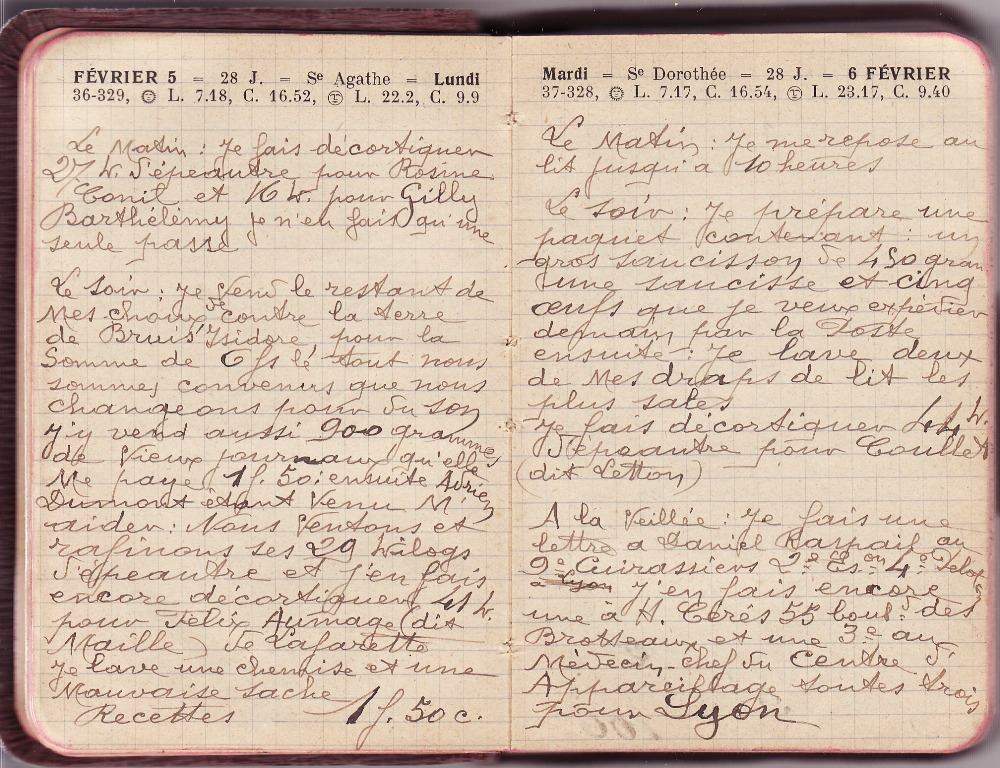 FÉVRIER 5 = 28 J. = Se Agathe = Lundi
36-329, L. 7.18, C. 16.52, L. 22.2, C. 9.9
Le Matin : Je fais décortiquer
27 k. d'épeautre pour Rosine
Conil et 16 k. pour Gilly
Barthélémy je n'en fais qu'une
seule passe
Le soir : Je vend le restant de
Mes choux contre la terre
de Bruis Isidore, pour la
Somme de 6 fs le tout nous
sommes convenus que nous
changeons pour du son
J'y vend aussi 900 grammes
de Vieux journaux qu'elle
Me paye 1 f. 50 : ensuite Adrien
Dumont étant Venu M'
aider : Nous Ventons et
rafinons ses 29 kilogs
d'épeautre et j'en fais
encore décortiquer 41 k.
pour Félix Aumage (dit
Maille) de Lafarette
Je lave une chemise et une
Mauvaise sache
Recettes 1 f. 50 c.
Mardi = Se Dorothée = 28 J. = 6 FÉVRIER
37-328, L. 7.17, C. 16.54, L. 23.17, C. 9.40
Le Matin : Je me repose au
lit jusqu'a 10 heures
Le soir : Je prépare une
paquet contenant : un
gros saucisson de 450 gram
une saucisse et cinq
œufs que je veux expédier
demain par la Poste
ensuite : Je lave deux
de Mes draps de lit les
plus sales
Je fais décortiquer 44 k.
d'épeautre pour Coullet
(dit Letton)
A la Veillée : Je fais une
lettre a Daniel Raspail au
9e Cuirassiers 2e Eson 4e Pelot
a Lyon J'en fais encore
une à H. Cerés 55 boul. des
Brotteaux et une 3e au
Médecin-chef du Centre d'
Appareillage toutes trois
pour Lyon